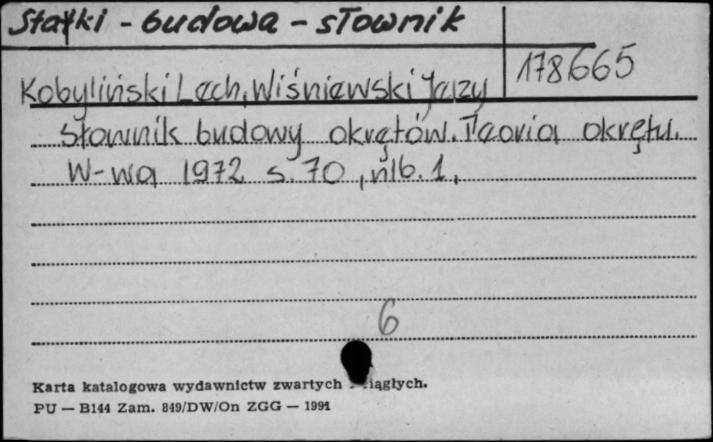 Statki - budowa - słownik
178665
Kobyliński Lech, Wiśniewski Jerzy
Słownik budowy okrętów. Teoria okrętu.
W-wa 1972 s. 70, nlb. 1.
6
Karta katalogowa wydawnictw zwartych ciągłych.
PU — B144 Zam. 849/DW/On ZGG — 1991